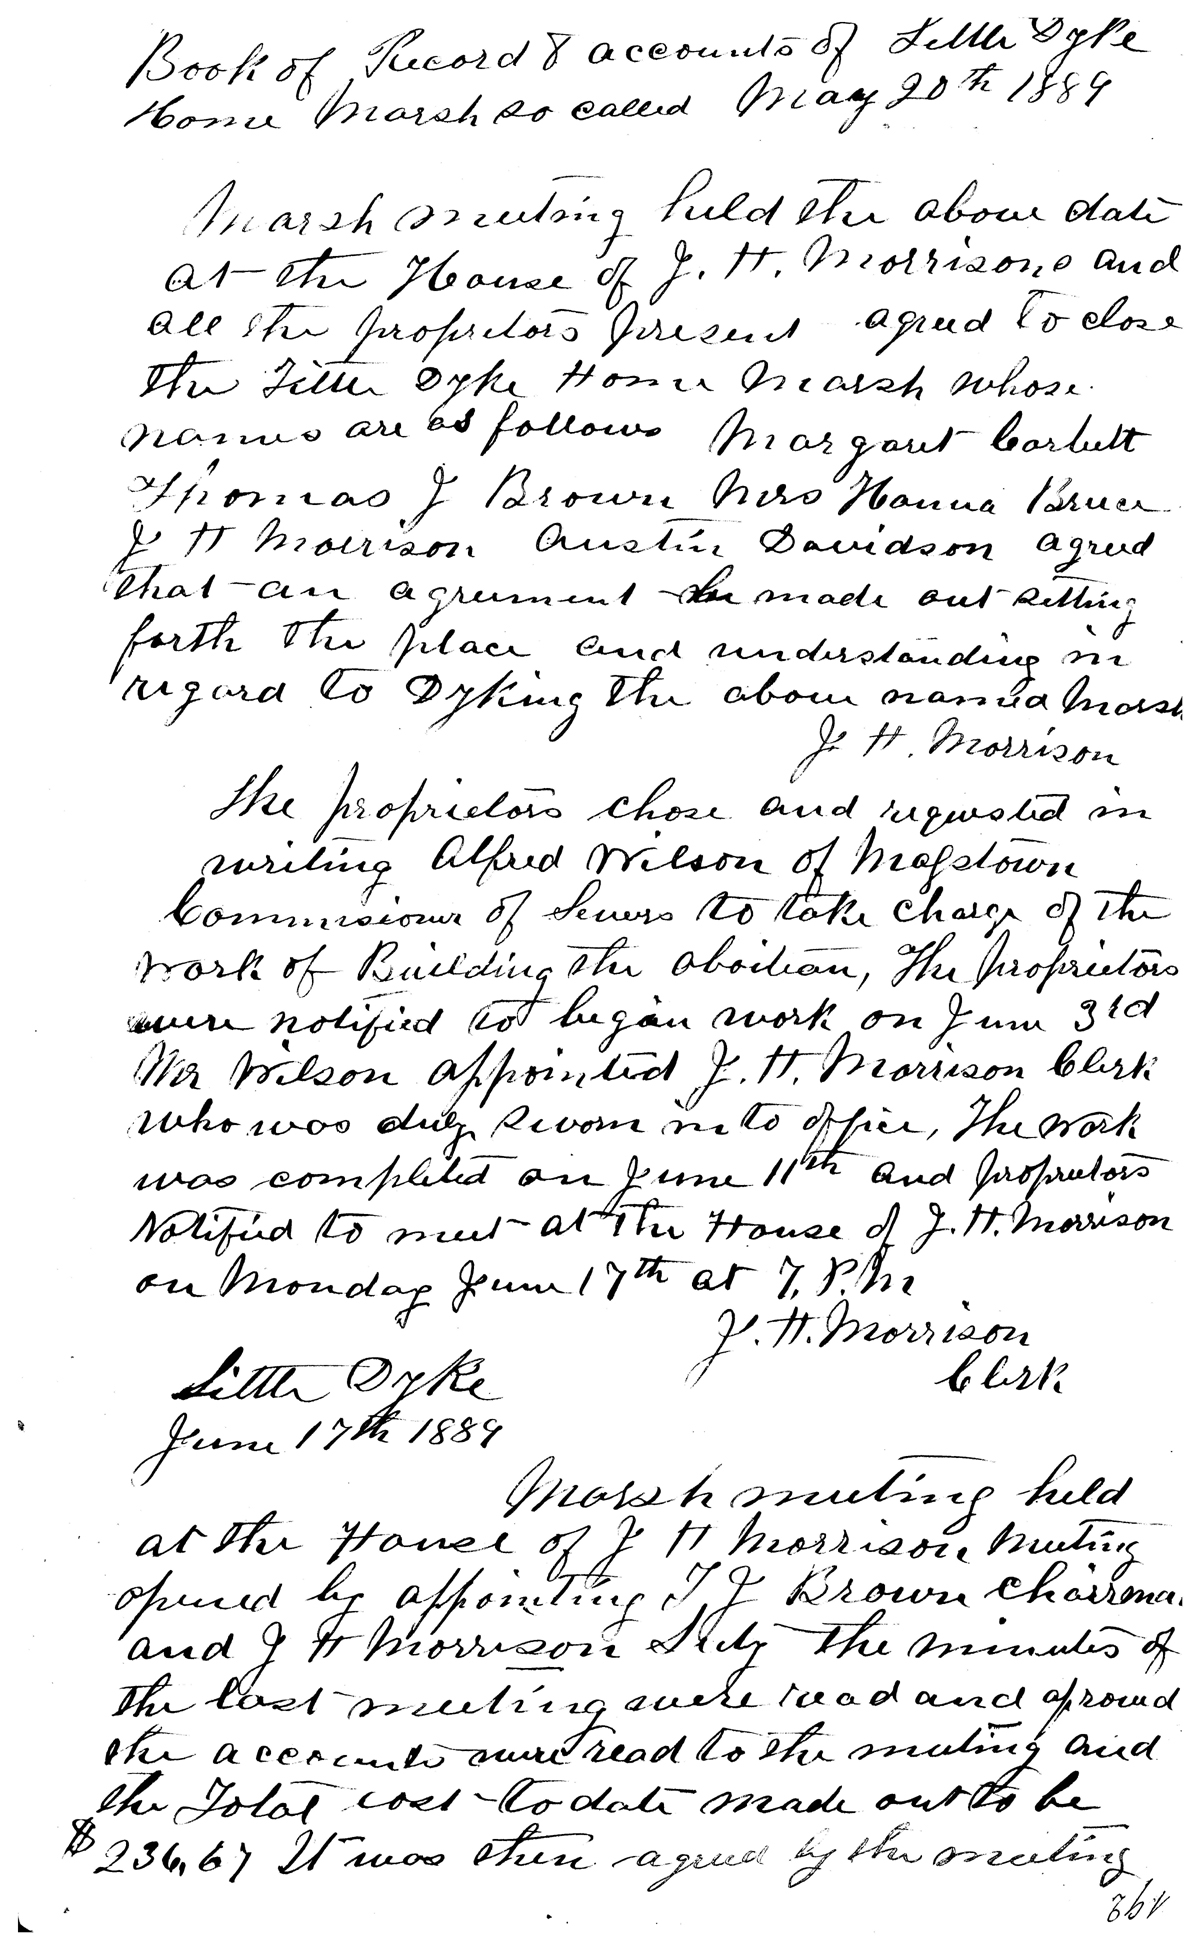 Book of Record & accounts of Little Dyke
Home Marsh so called May 20th 1889
Marsh meeting held the above date
at the House of J. H. Morrisons and
all the propritors present agreed to close
the Little Dyke Home Marsh whose
names are as follows Margaret Corbett
Thomas J Brown Mrs Hanna Bruce
J H Morrison Austin Davidson agreed
that an agreement be made out setting
forth the place and understanding in
regard to Dyking the above named Marsh
J. H. Morrison
The proprietors chose and requested in
writing Alfred Wilson of Masstown
Commisioner of Sewers to take charge of the
work of Building the aboiteau, The proprietors
were notified to began work on June 3rd
Mr Wilson appointed J. H. Morrison Clerk
who was duly sworn into office, The work
was completed on June 11th and proprietors
Notified to meet at the House of J. H. Morrison
on Monday June 17th at 7. P.M
J. H. Morrison
Clerk
Little Dyke
June 17th 1889
Marsh meeting held
at the House of J H Morrison Meeting
opened by appointing T J Brown Chairma
and J H Morrison Secty The minutes of
the last meeting were read and aproved
the accounts were read to the meeting and
the Total cost to date made out to be
$236,67 It was then agreed by the meeting